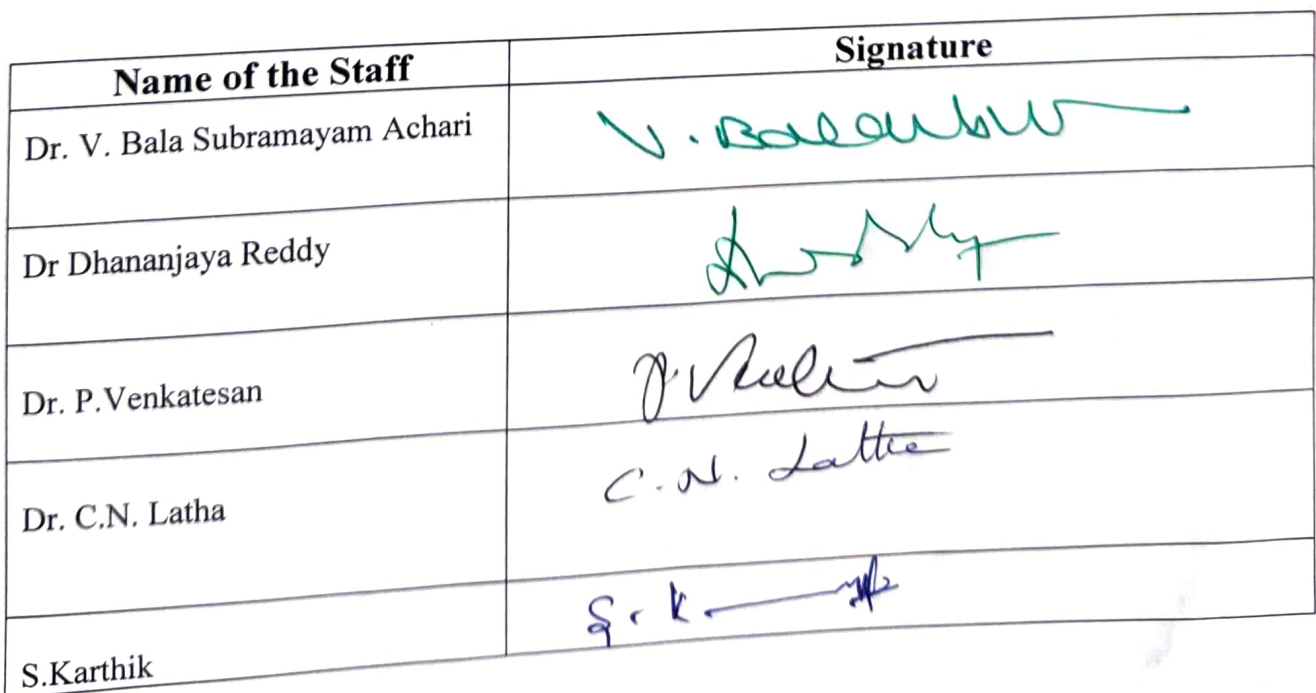 Name of the Staff Signature
Dr. V. Bala Subramayam Achari V. Bala
Dr Dhananjaya Reddy
Dr. P.Venkatesan P. V
Dr. C.N. Latha C. N. Latha
S.Karthik S. K